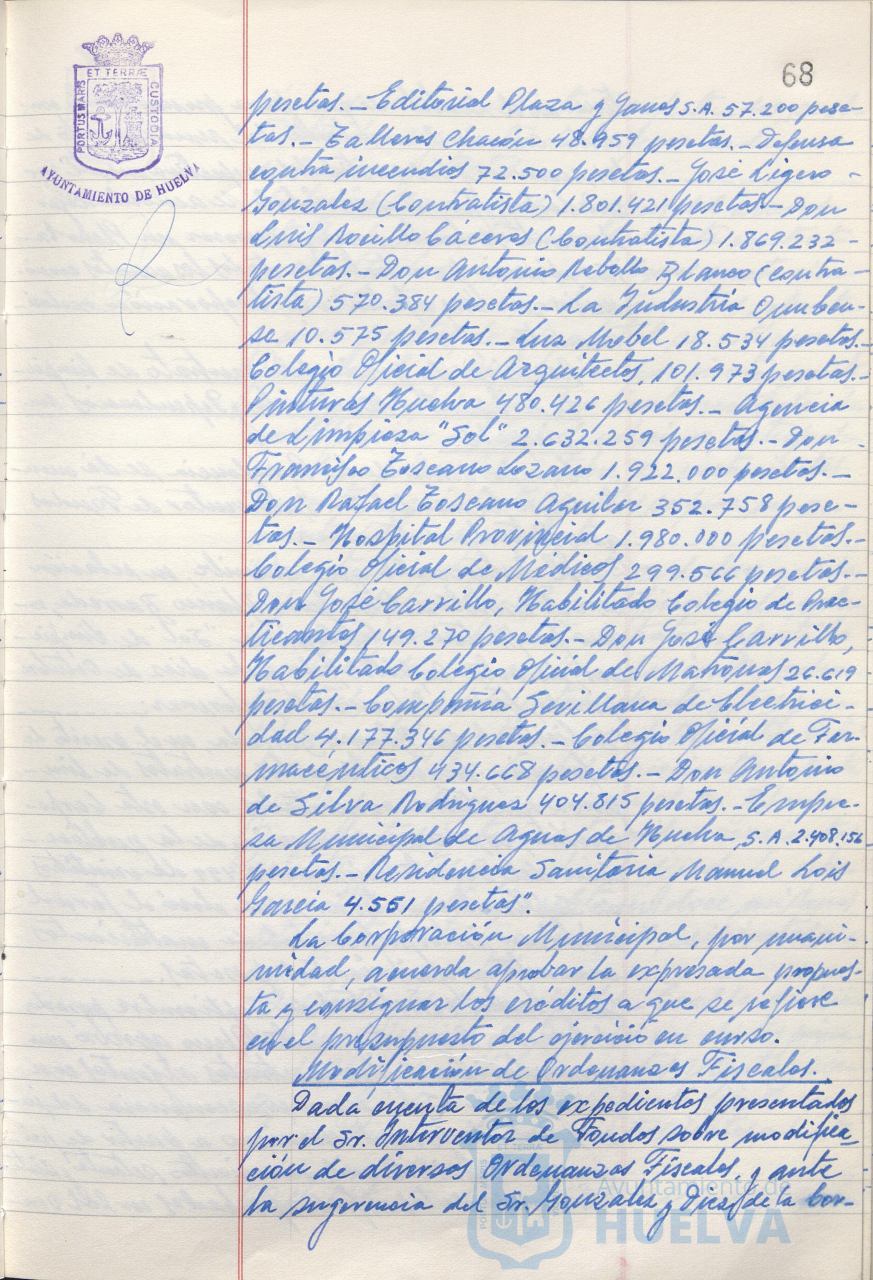 68
ET TERRÆ
PORTUS MARIS
CUSTODIA
AYUNTAMIENTO DE HUELVA
pesetas.- Editorial Plaza y Janes S.A. 57.200 pese-
tas.- Talleres Chacón 48.959 pesetas.- Defensa
contra incendios 72.500 pesetas.- José Ligero -
Gonzalez (Contratista) 1.801.421 pesetas.- Don
Luis Rocillo Cáceres (Contratista) 1.869.232 -
pesetas.- Don Antonio Rebollo Blanco (contra-
tista) 570.384 pesetas.- La Industria Onuben-
se 10.575 pesetas.- Luz Mobel 18.534 pesetas.-
Colegio Oficial de Arquitectos, 101.973 pesetas.-
Pinturas Huelva 480.426 pesetas.- Agencia
de Limpieza "Sol" 2.632.259 pesetas.- Don
Francisco Toscano Lozano 1.922.000 pesetas.-
Don Rafael Toscano Aguilar 352.758 pese-
tas.- Hospital Provincial 1.980.000 pesetas.-
Colegio Oficial de Médicos 299.566 pesetas.-
Don José Carrillo, Habilitado Colegio de Prac-
ticantes 149.270 pesetas.- Don José Carrillo,
Habilitado Colegio Oficial de Matronas 26.619
pesetas.- Compañía Sevillana de Electrici-
dad 4.177.346 pesetas.- Colegio Oficial de Far-
macéuticos 434.668 pesetas.- Don Antonio
de Silva Rodriguez 404.815 pesetas.- Empre-
sa Municipal de Aguas de Huelva, S.A. 2.408.156
pesetas.- Residencia Sanitaria Manuel Lois
Garcia 4.551 pesetas".
La Corporación Municipal, por unani-
midad, acuerda aprobar la expresada propues-
ta y consignar los créditos a que se refiere
en el presupuesto del ejercicio en curso.
Modificación de Ordenanzas Fiscales.
Dada cuenta de los expedientes presentados
por el Sr. Interventor de Fondos sobre modifica-
ción de diversas Ordenanzas Fiscales, y ante
la sugerencia del Sr. Gonzalez y Diez de la Cor-
Ayuntamiento de
HUELVA